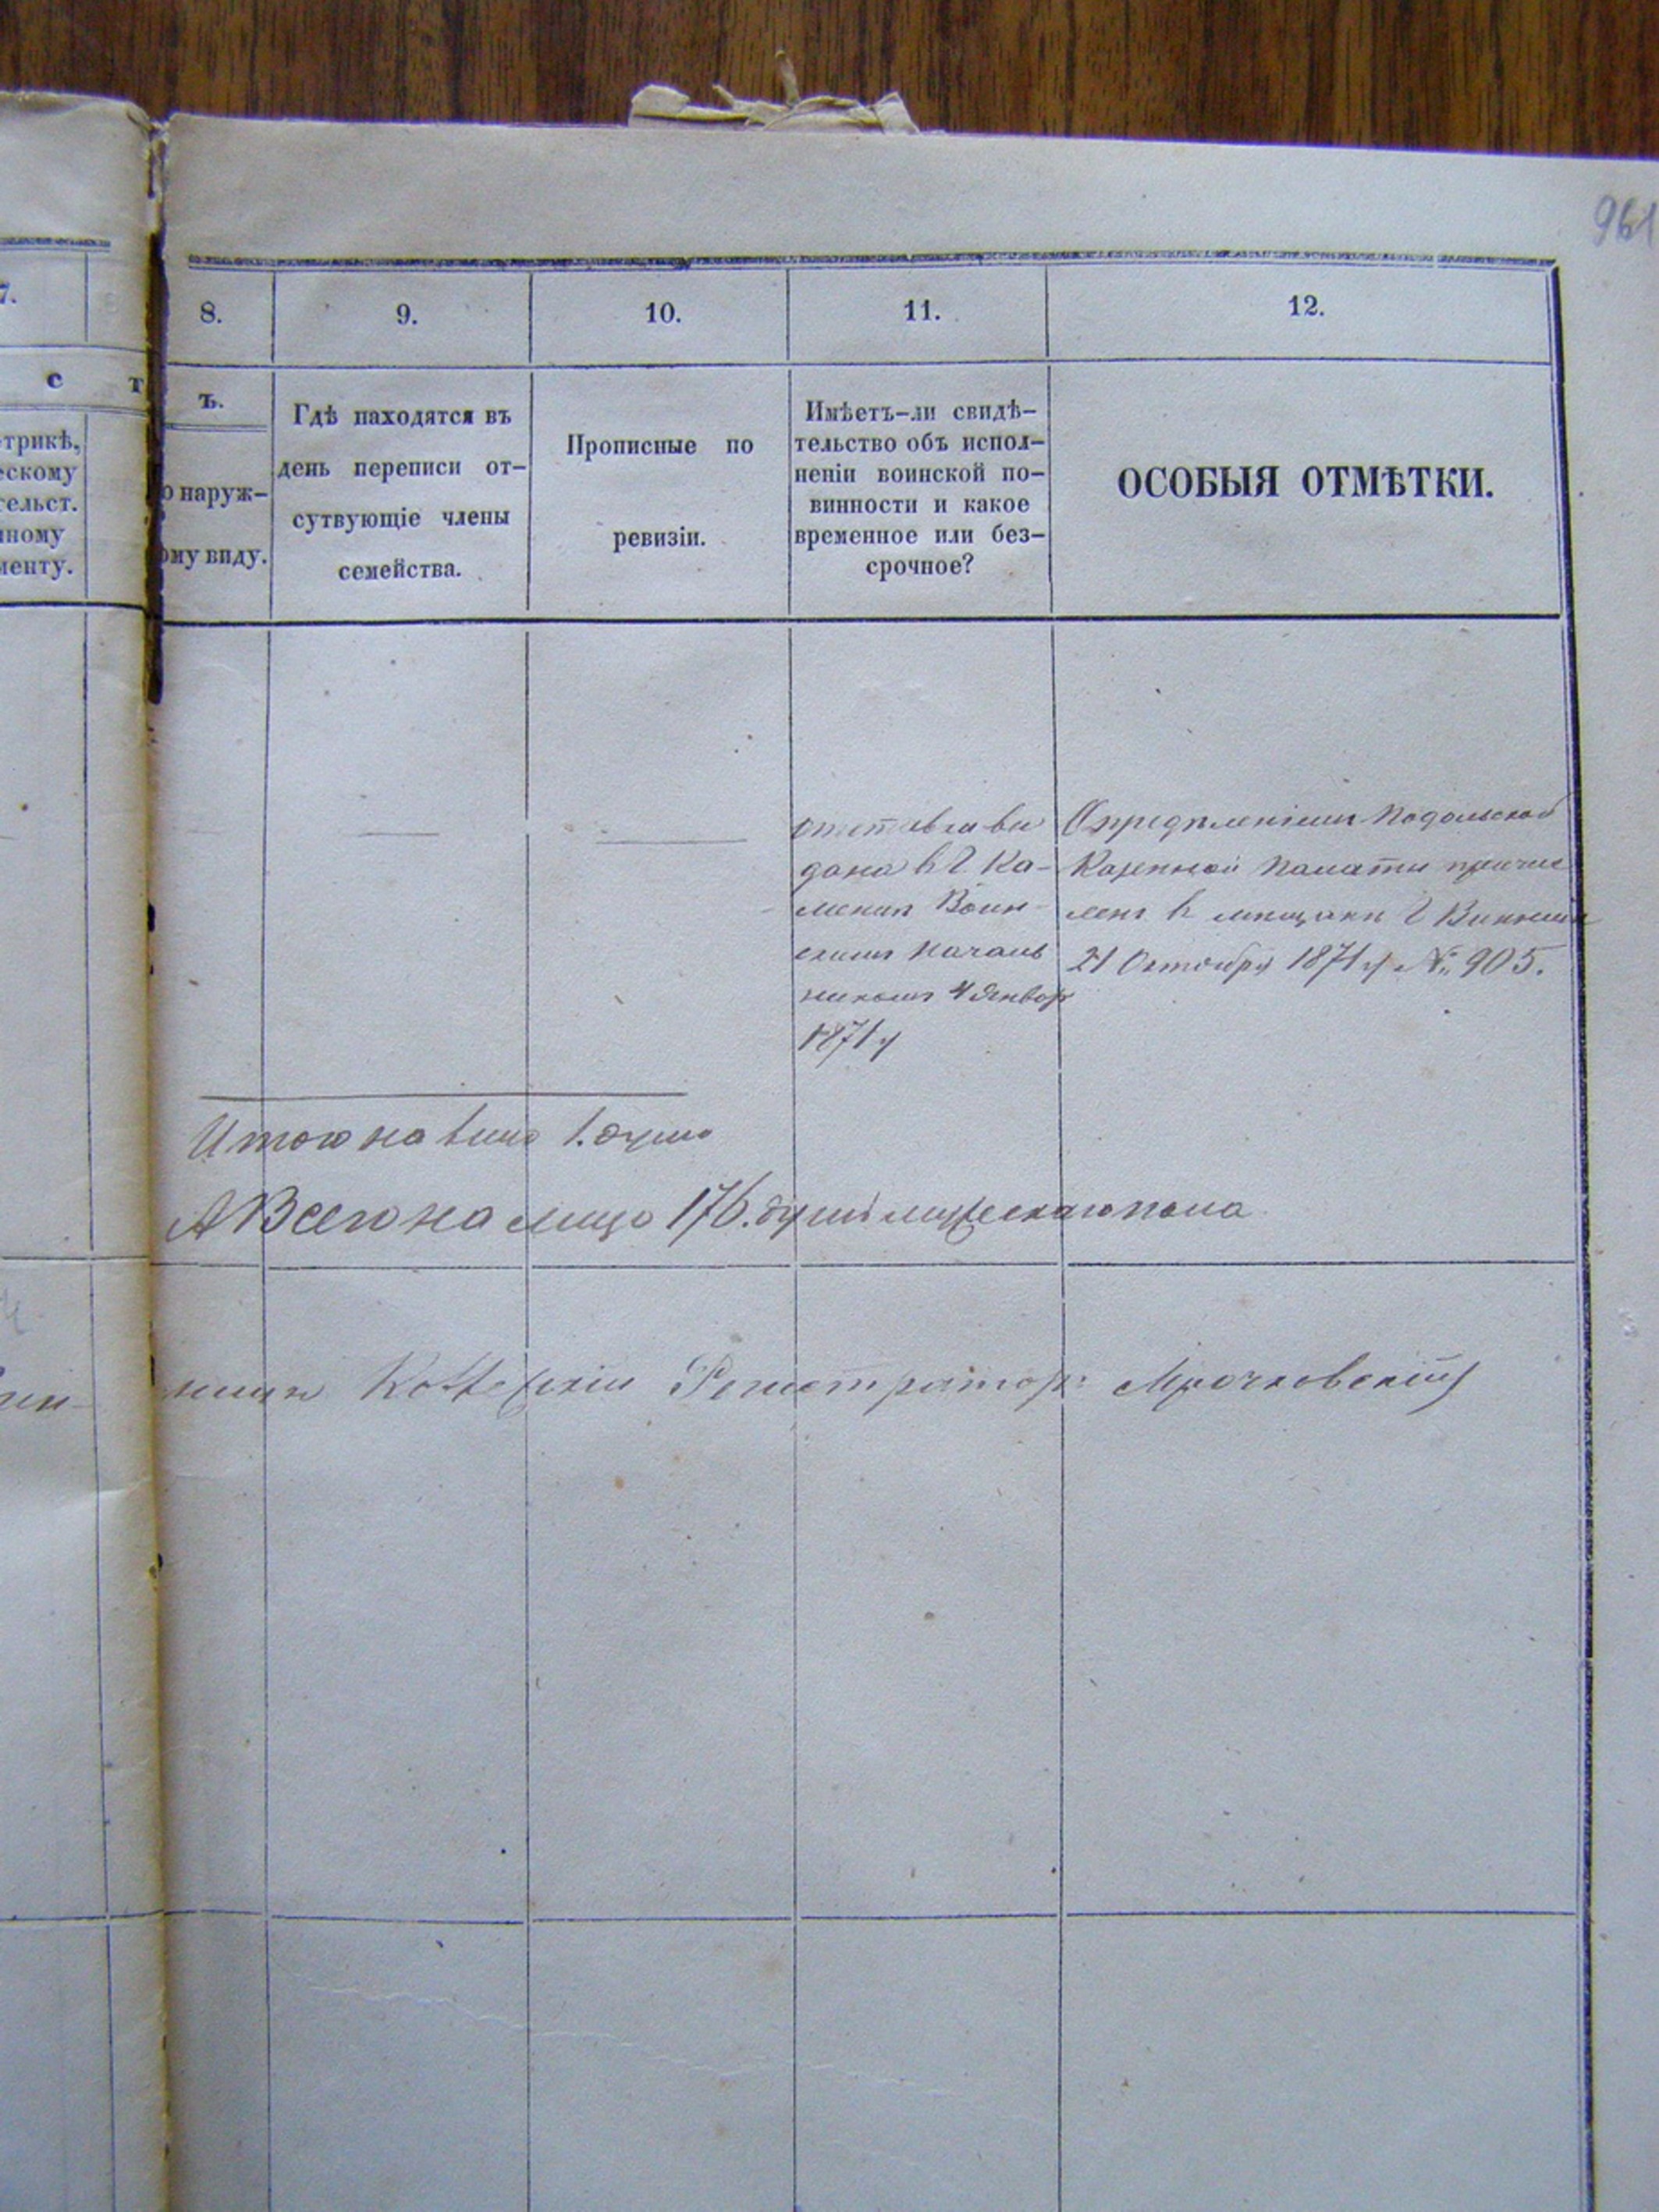 961
7.
8.
9.
10.
11.
12.
с т
ъ.
трикѣ,
ескому
тельст.
нному
менту.
о наруж-
ому виду.
Гдѣ находятся въ
день переписи от-
сутвующіе члены
семейства.
Прописные по
ревизіи.
Имѣетъ-ли свидѣ-
тельство объ испол-
неніи воинской по-
винности и какое
временное или без-
срочное?
ОСОБЫЯ ОТМѢТКИ.
отставка вы
дана в Г. Ка-
менцѣ Воин-
скимъ Началь
никомъ 4 Январ
1871 г
Опредѣленіемъ Подольской
Казенной Палаты причис
ленъ в мещани Г Винницы
21 Октября 1871 г № 905.
Итого на лицо 1. душа
А Всего на лицо 176. душ мужескаго пола
Регистраторъ Мрочковскій